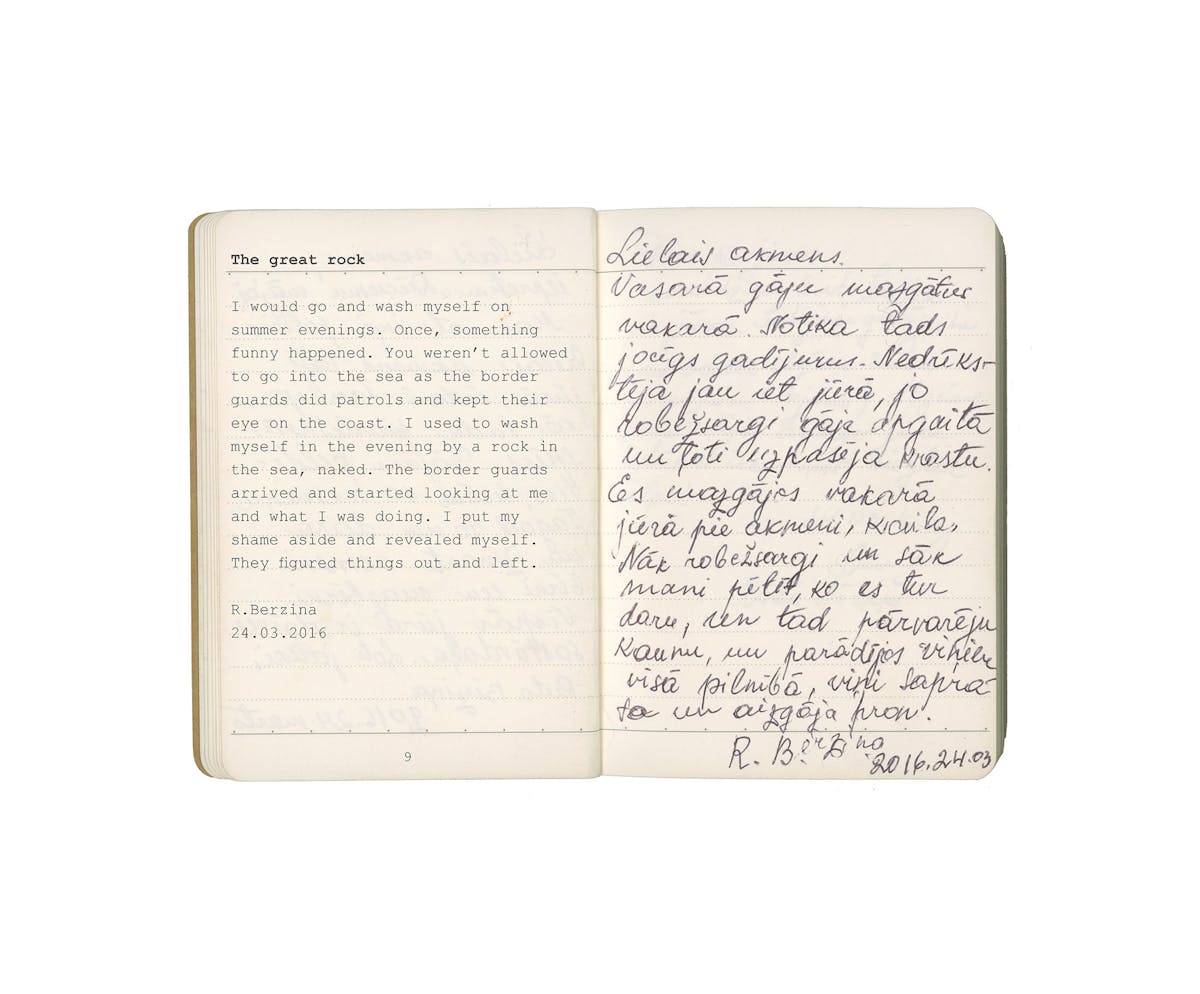 The great rock
I would go and wash myself on
summer evenings. Once, something
funny happened. You weren't allowed
to go into the sea as the border
guards did patrols and kept their
eye on the coast. I used to wash
myself in the evening by a rock in
the sea, naked. The border guards
arrived and started looking at me
and what I was doing. I put my
shame aside and revealed myself.
They figured things out and left.
R.Berzina
24.03.2016
9
Lielais akmens.
Vasarā gāju mazgāties
vakarā. Notika tāds
jocīgs gadījums. Nedrīks-
tēja jau iet jūrā, jo
robežsargi gāja apgaitā
un ļoti uzpasēja krastu.
Es mazgājos vakarā
jūrā pie akmeni, kaila.
Nāk robežsargi un sāk
mani pētīt, ko es tur
daru, un tad pārvarēju
kaunu, un parādījos viņiem
visā pilnībā, viņi saprā
ta un aizgāja prom.
R. Berziņa
2016.24.03